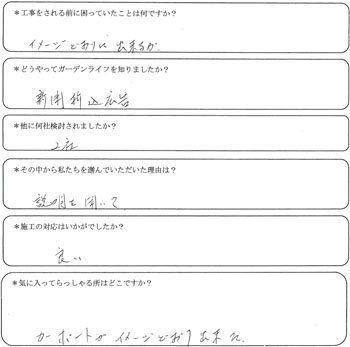 *工事をされる前に困っていたことは何ですか？
イメージどおりに出来るか
*どうやってガーデンライフを知りましたか？
新聞折込広告
*他に何社検討されましたか？
2社
*その中から私たちを選んでいただいた理由は？
説明を聞いて
*施工の対応はいかがでしたか？
良い
*気に入ってらっしゃる所はどこですか？
カーポートがイメージどおり出来た